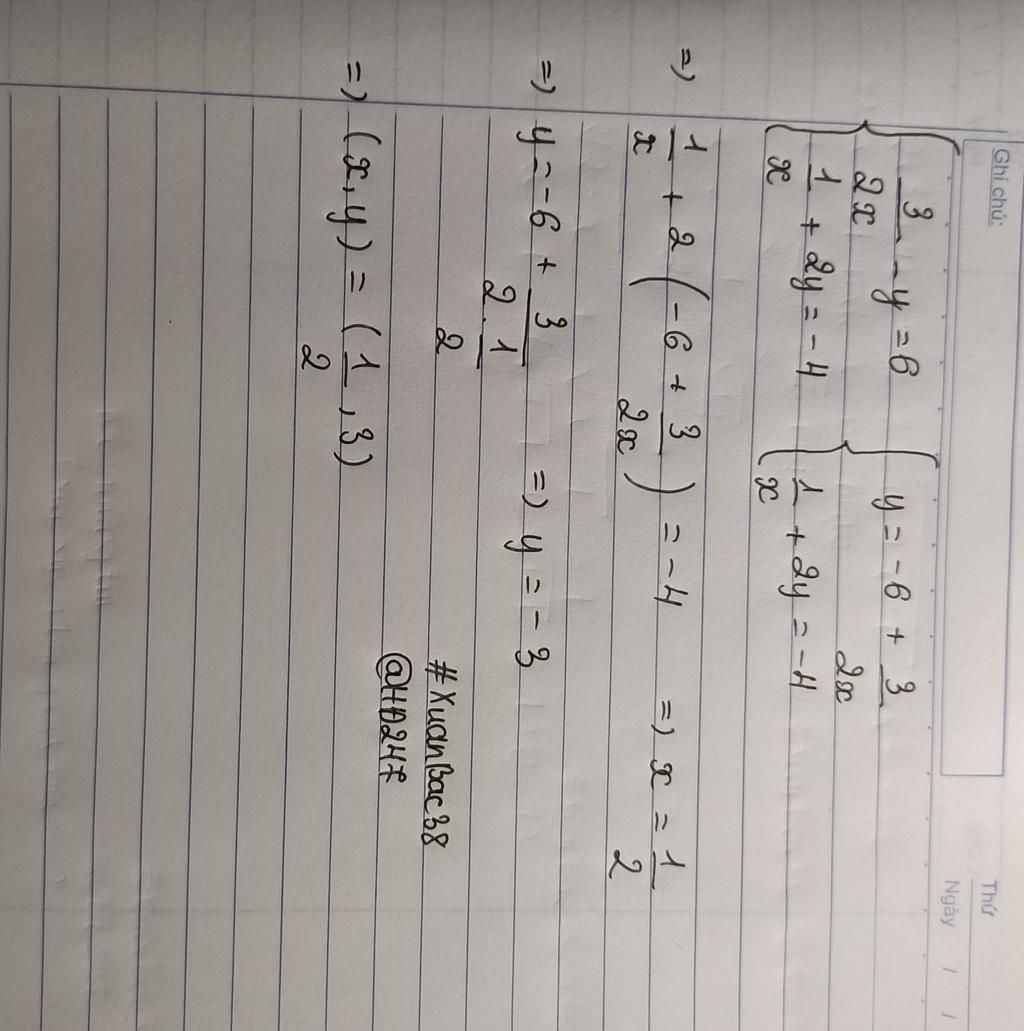 Ghi chú:
Thứ
Ngày / /
{ 3/2x - y = 6 { y = -6 + 3/2x
{ 1/x + 2y = -4 { 1/x + 2y = -4
=) 1/x + 2 ( -6 + 3/2x ) = -4 =) x = 1/2
=) y = -6 + 3/(2 . 1/2) =) y = -3
=) (x, y) = (1/2, 3)
#XuanBac38
@HĐ247